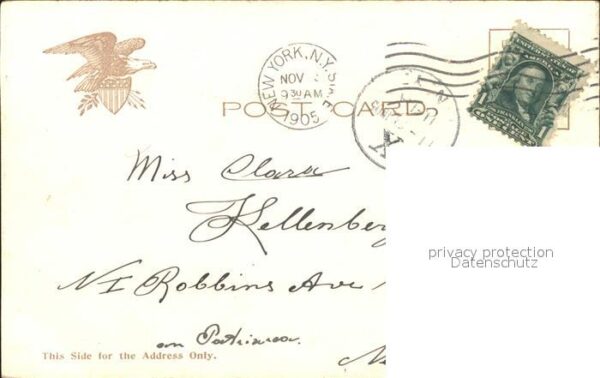 NEW YORK, N.Y.
NOV
9 30 AM
1905
POST CARD.
1 1
Miss Clara
Kellenber
N I Robbins Ave
privacy protection
Datenschutz
This Side for the Address Only.